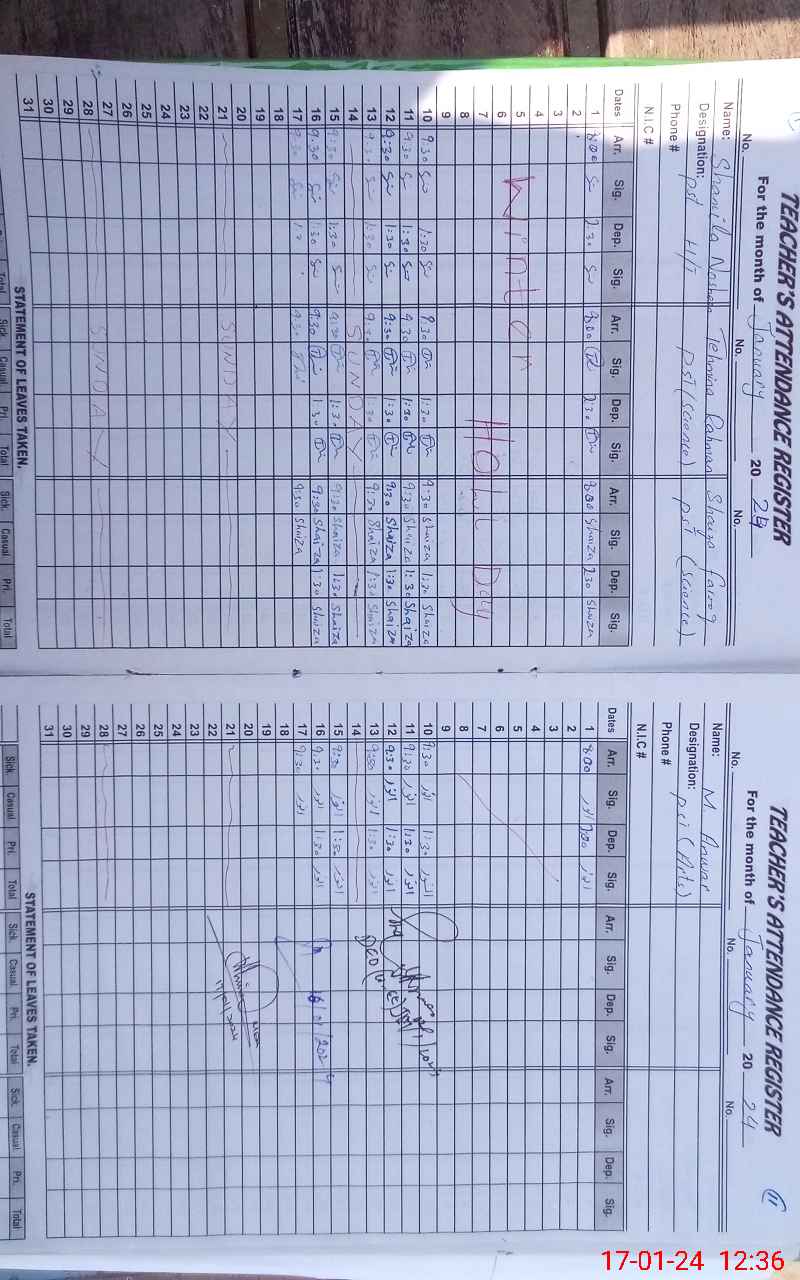 TEACHER'S ATTENDANCE REGISTER
For the month of January 20 24
No. No. No.
Name: Shamila Tehmina Rahman Shaiza farooq
Designation: pst pst (science) pst (science)
Phone #
N.I.C #
Dates Arr. Sig. Dep. Sig. Arr. Sig. Dep. Sig. Arr. Sig. Dep. Sig.
1 8:00 8:00 8:00 Shaiza Shaiza
2
3
4
5
6 Winter Holi Day
7
8
9
10 9:30 1:30 9:30 1:30 9:30 Shaiza 1:30 Shaiza
11 9:30 1:30 9:30 1:30 9:30 Shaiza 1:30 Shaiza
12 9:30 1:30 9:30 1:30 9:30 Shaiza 1:30 Shaiza
13 9:30 1:30 9:30 1:30 9:30 Shaiza 1:30 Shaiza
14 SUNDAY
15 9:30 1:30 9:30 1:30 9:30 Shaiza 1:30 Shaiza
16 9:30 1:30 9:30 1:30 9:30 Shaiza 1:30 Shaiza
17 9:30 9:30 9:30 Shaiza
18
19
20
21 SUNDAY
22
23
24
25
26
27
28 SUNDAY
29
30
31
STATEMENT OF LEAVES TAKEN.
Total Sick. Casual Pri. Total Sick. Casual Pri. Total
TEACHER'S ATTENDANCE REGISTER
11
For the month of January 20 24
No. No. No.
Name: M. Anwar
Designation: (Arts)
Phone #
N.I.C #
Dates Arr. Sig. Dep. Sig. Arr. Sig. Dep. Sig. Arr. Sig. Dep. Sig.
1 8:00 انور انور
2
3
4
5
6
7
8
9
10 9:30 انور 1:30 انور
11 9:30 انور 1:30 انور
12 9:30 انور 1:30 انور
13 9:30 انور 1:30 انور
14
15 9:30 انور 1:30 انور
16 9:30 انور 1:30 انور
17 9:30 انور
18
19
20
21
22
23
24
25
26
27
28
29
30
31
16/01/2024
17/01/2024
STATEMENT OF LEAVES TAKEN.
Sick. Casual Pri. Total Sick. Casual Pri. Total Sick. Casual Pri. Total
17-01-24 12:36